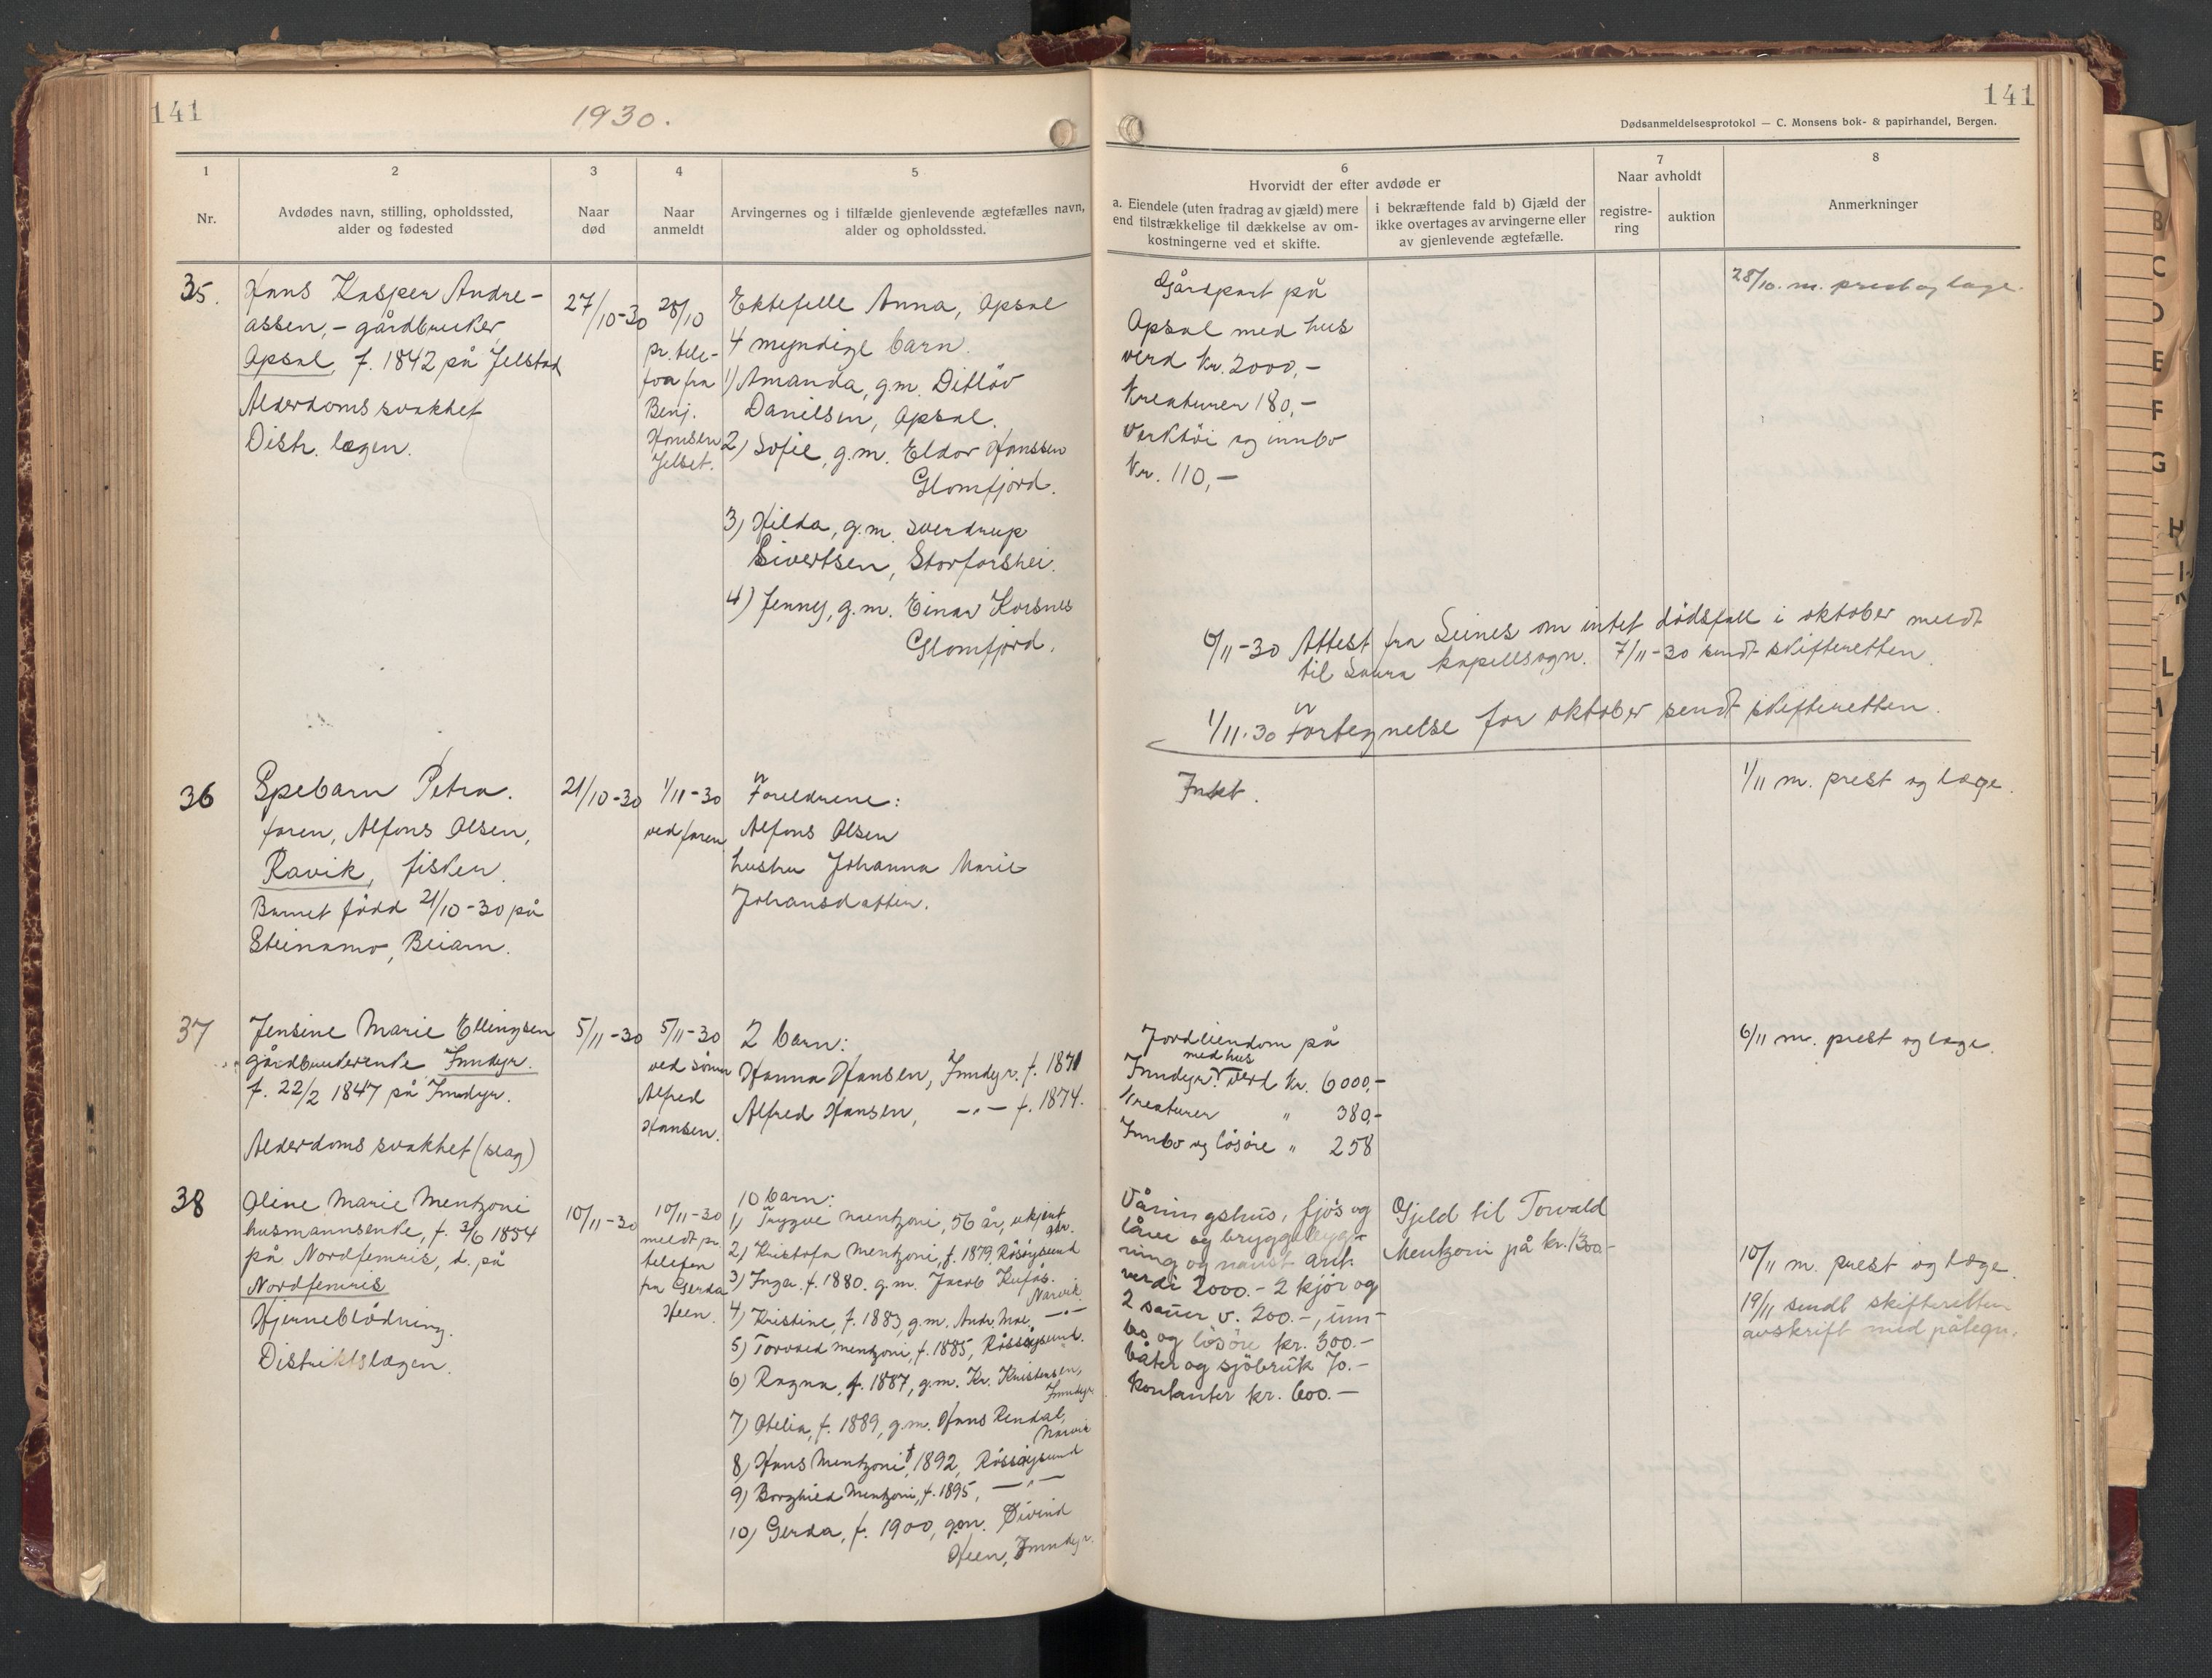 141
1930.
141
Dødsanmeldelsesprotokol — C. Monsens bok- & papirhandel, Bergen.
1
2
3
4
5
6
7
8
Nr.
Avdødes navn, stilling, opholdssted,
alder og fødested
Naar
død
Naar
anmeldt
Arvingernes og i tilfælde gjenlevende ægtefælles navn,
alder og opholdssted.
Hvorvidt der efter avdøde er
a. Eiendele (uten fradrag av gjæld) mere
end tilstrækkelige til dækkelse av om-
kostningerne ved et skifte.
i bekræftende fald b) Gjæld der
ikke overtages av arvingerne eller
av gjenlevende ægtefælle.
Naar avholdt
registre-
ring
auktion
Anmerkninger
35.
Hans Kasper Andre-
assen, - gårdbruker,
Opsal, f. 1842 på Jelstad
Alderdomssvakhet
Distr. lægen.
27/10-30
28/10
pr. tele-
fon fra
Benj.
Hansen
Jelset.
Ektefelle Anna, Opsal
4 myndige barn.
1) Amanda, g.m. Ditløv
Danielsen, Opsal.
2) Sofie, g.m. Eldor Hanssen
Glomfjord.
3) Hilda, g.m. Sverdrup
Sivertsen, Storforshei.
4) Jenny, g.m. Einar Korsnes
Glomfjord.
Gårdpart på
Opsal med hus
verd kr. 2000,-
Kreaturer 180,-
Verktöi og innbo
kr. 110,-
28/10. m. prest og læge.
6/11-30 Attest fra Seines om intet dödsfall i oktober meldt
til Saura kapellsogn. 7/11-30 sendt skifteretten.
1/11.30 Fortegnelse for oktober sendt skifteretten.
36
Spebarn Petra.
faren, Alfons Olsen,
Ravik, fisker.
Barnet född 21/10-30 på
Steinamo, Beiarn.
21/10-30
1/11-30
ved faren
Foreldrene:
Alfons Olsen
hustru Johanna Marie
Johansdatter.
Intet.
1/11 m. prest og læge.
37
Jensine Marie Ellingsen
gårdbrukerenke Inndyr.
f. 22/2 1847 på Inndyr.
Alderdomssvakhet (slag)
5/11-30
5/11-30
ved sönn
Alfred
Hansen.
2 barn:
Hanna Hansen, Inndyr. f. 1871
Alfred Hansen, -„- f. 1874.
Jordeiendom på
med hus
Inndyr. verd kr. 6000,-
Kreaturer „ 380,-
Innbo og lösöre „ 258
6/11 m. prest og læge.
38
Oline Marie Mentzoni
husmannsenke, f. 3/6 1854
på Nordfemris, d. på
Nordfemris
Hjerneblödning.
Distriktslægen.
10/11-30
10/11-30
meldt pr.
telefon
fra Gerda
Heen.
10 barn:
1) Trygve Mentzoni, 56 år, ukjent
adr.
2) Kristofa Mentzoni, f. 1879, Rössöysund
3) Inga. f. 1880. g.m. Jacob
Narvik.
4) Kristine, f. 1883 g.m. Andr. Moe, -„-
5) Torvald Mentzoni, f. 1885, Rössöysund.
6) Ragna, f. 1887, g.m. Kr. Kristensen,
Inndyr
7) Otelia, f. 1889, g.m. Hans Rendal,
Narvik
8) Hans Mentzoni, f. 1892, Rössöysund
9) Borghild Mentzoni, f. 1895, -„-
10) Gerda, f. 1900, g.m. Öivind
Heen, Inndyr.
Våningshus, fjös og
låve og bryggebyg-
ning og naust ant.
verdi 2000.- 2 kjör og
2 sauer v. 200.-, inn-
bo og lösöre kr. 300.-
båter og sjöbruk 70.-
kontanter kr. 600.-
Gjeld til Torvald
Mentzoni på kr. 1300.-
10/11 m. prest og læge.
19/11 sendt skifteretten
avskrift med påtegn.
B
C
D
E
F
G
H
I
K
L